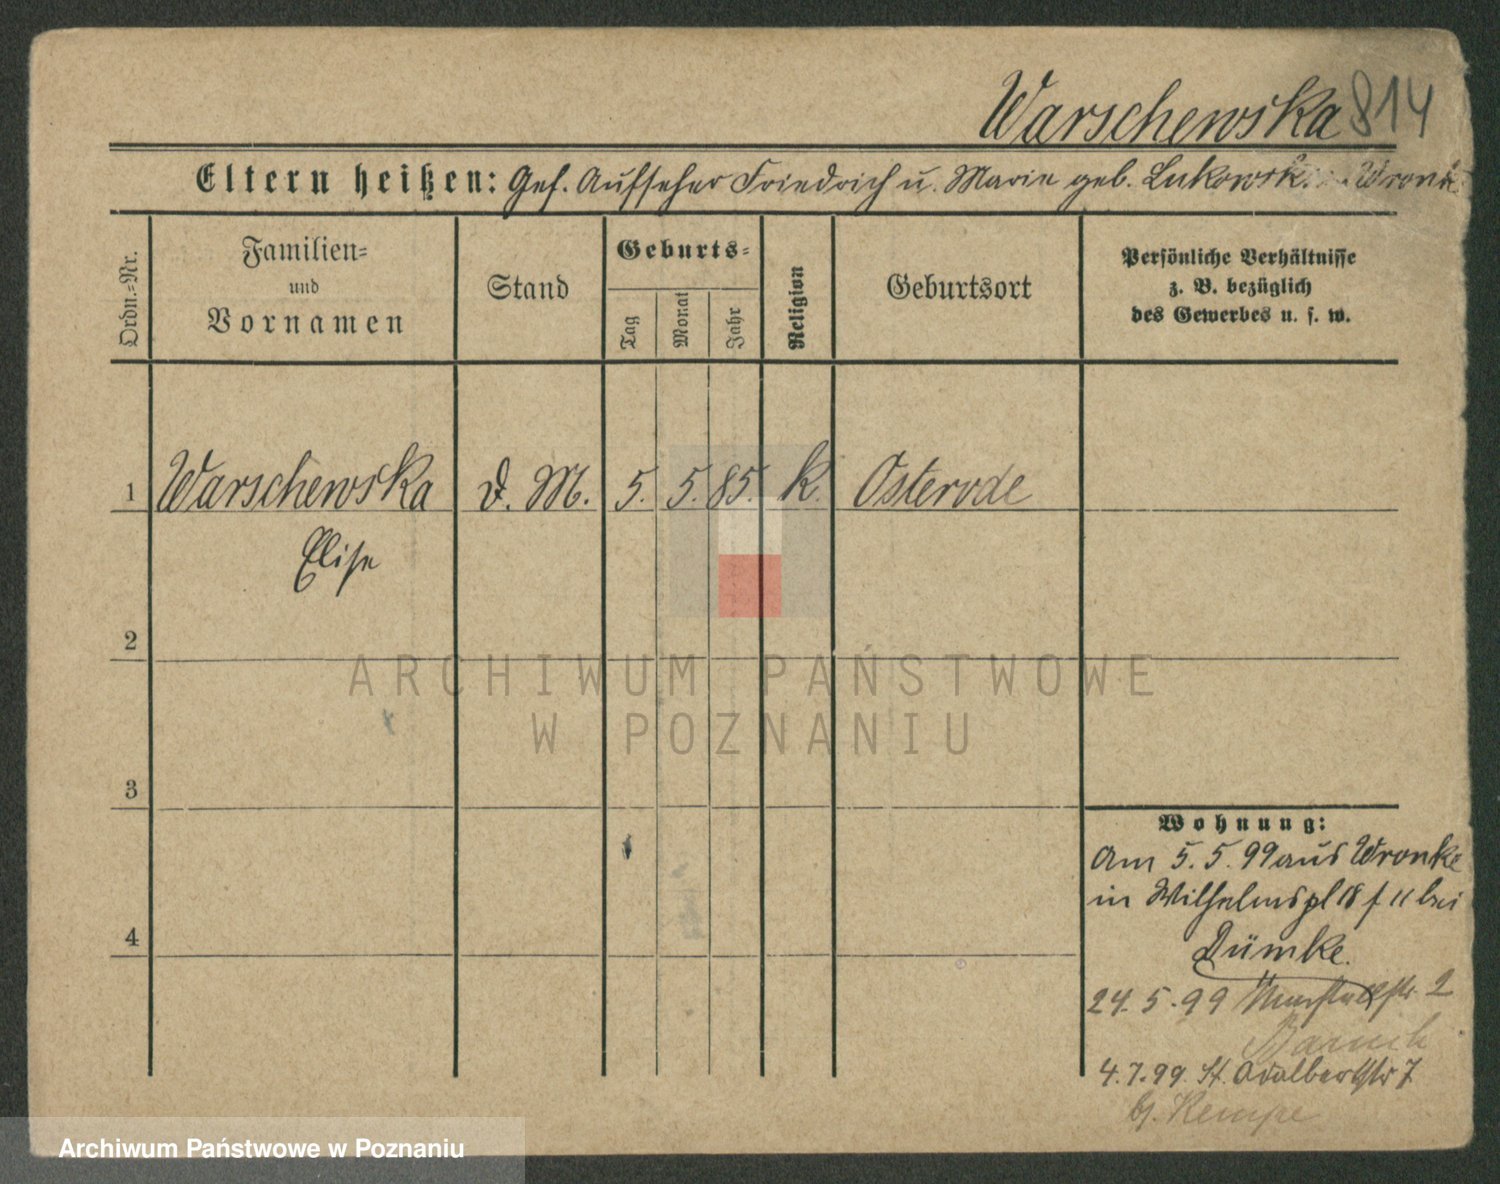 Warschewska 814
Eltern heißen: Gef. Aufseher Friedrich u. Marie geb. Lukowsk. Wronk
Ordn.-Nr.
Familien-
und
Vornamen
Stand
Geburts-
Tag
Monat
Jahr
Religion
Geburtsort
Persönliche Verhältnisse
z. B. bezüglich
des Gewerbes u. s. w.
1 Warschewska d. M. 5. 5. 85. k. Osterode
Elise
2
3
4
Wohnung:
Am 5. 5. 99 aus Wronke
in Wilhelmspl 18 f II bei
Dümke.
24. 5. 99 2
4. 7. 99. St. Adalbertstr 7
bj. Kempe
ARCHIWUM PAŃSTWOWE
W POZNANIU
Archiwum Państwowe w Poznaniu